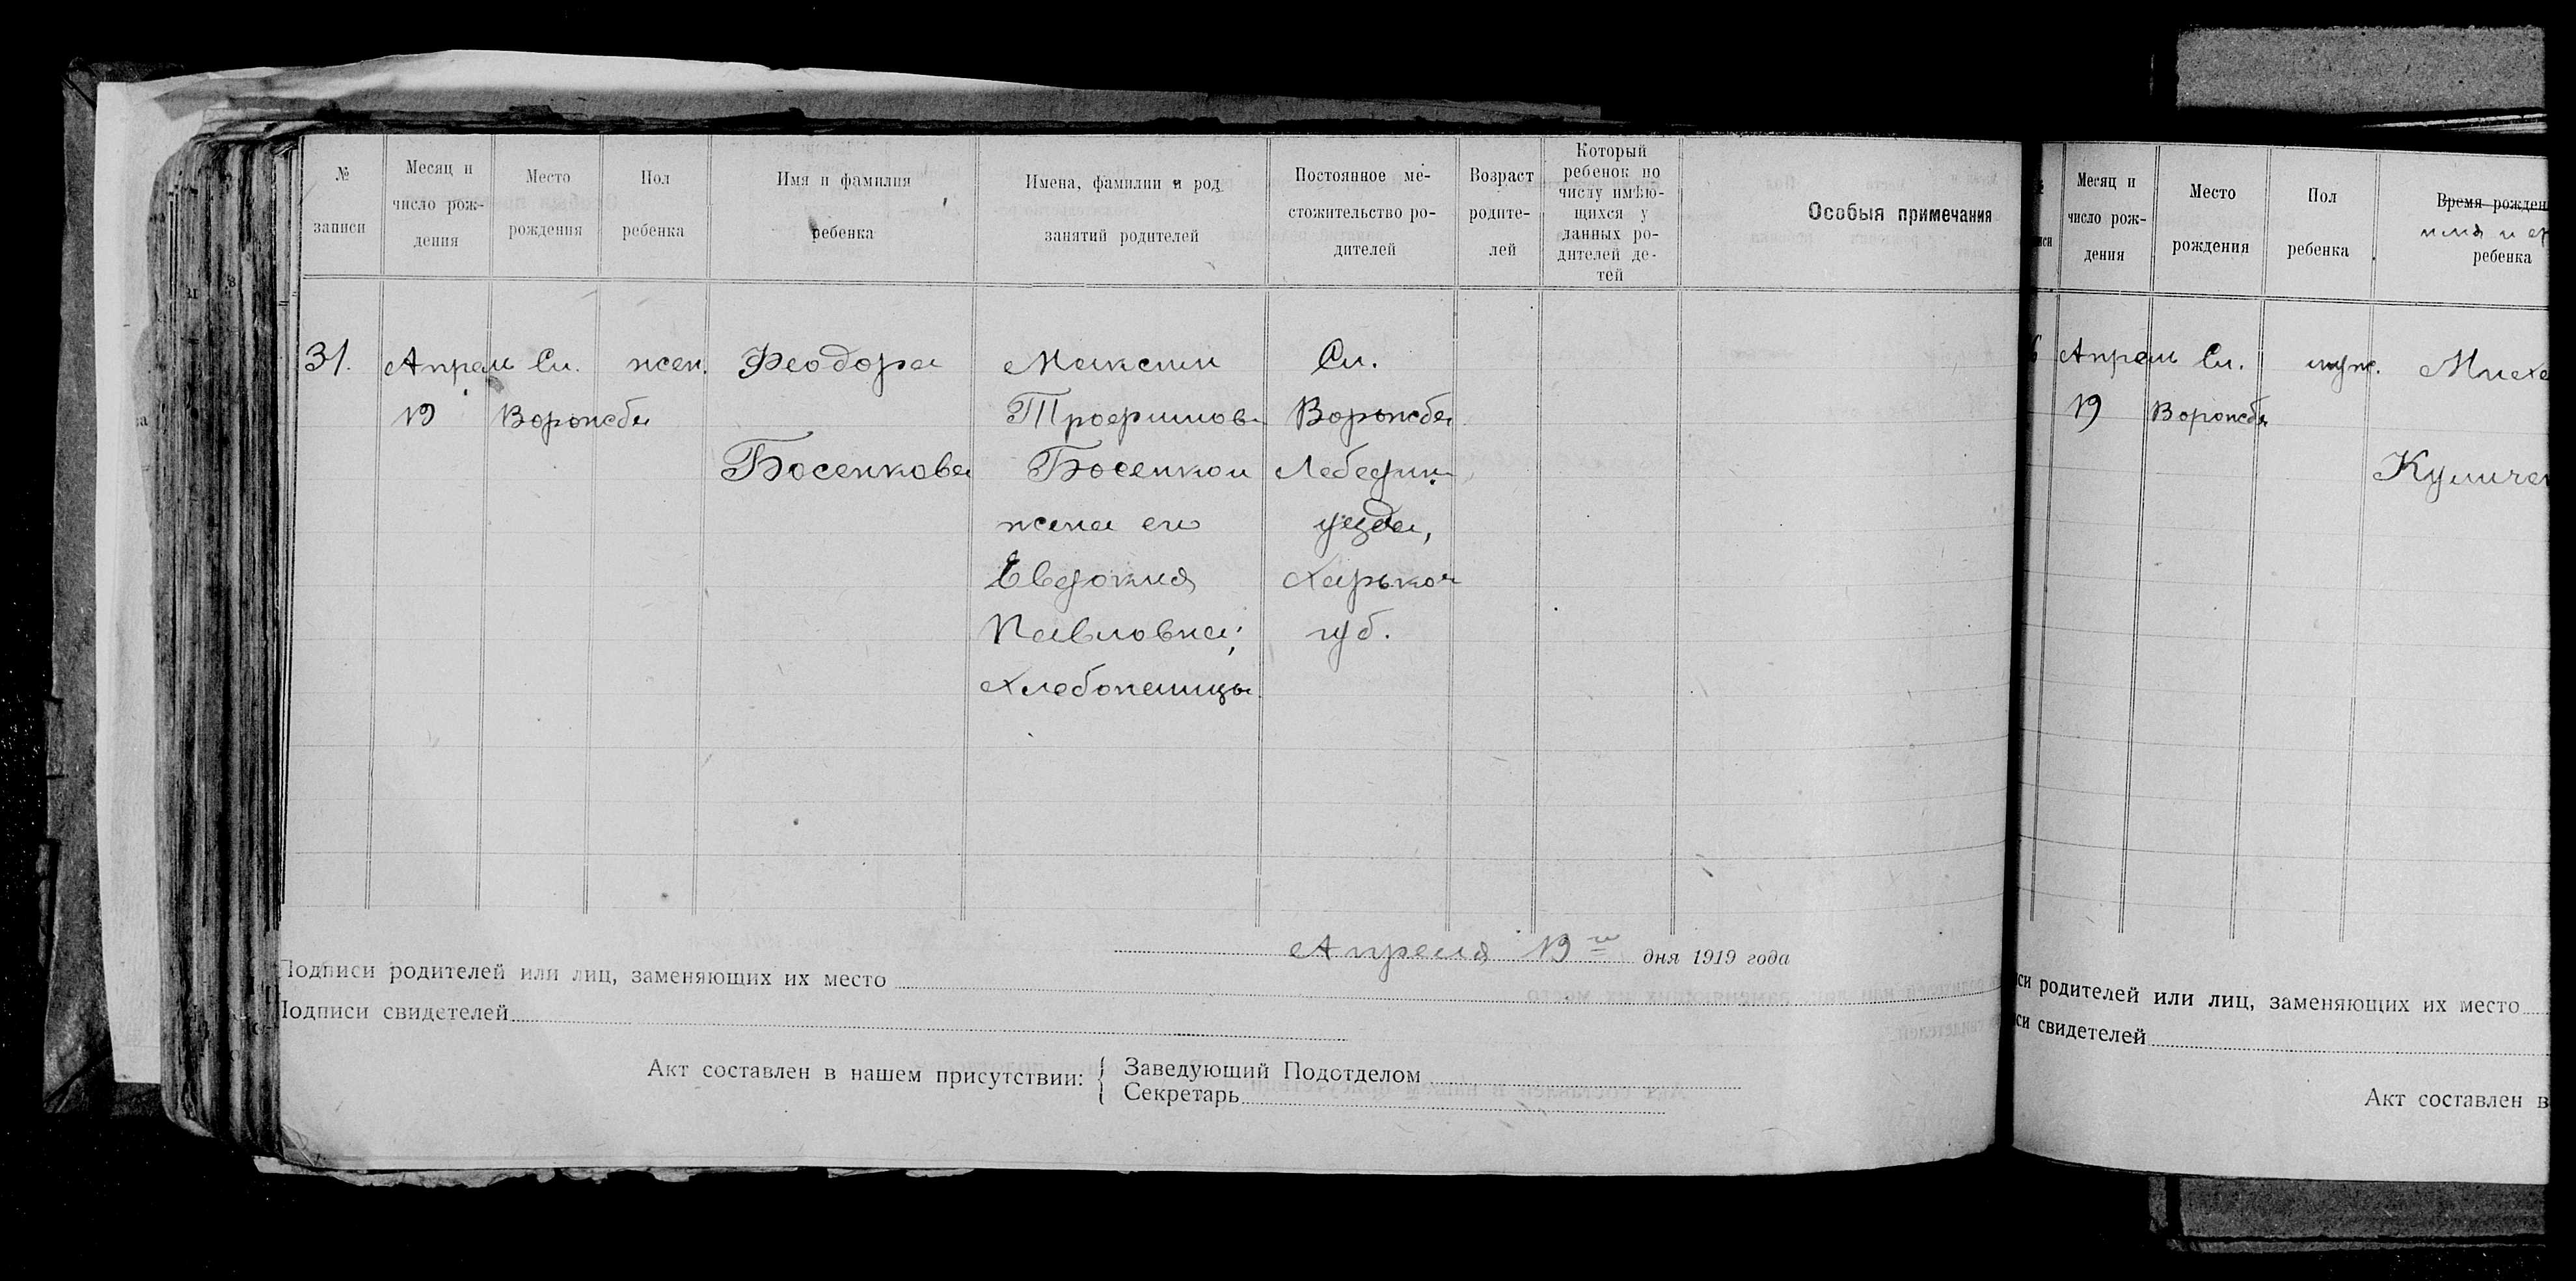 № записи
Месяц и число рождения
Место рождения
Пол ребенка
Имя и фамилия ребенка
Имена, фамилии и род занятий родителей
Постоянное местожительство родителей
Возраст родителей
Который ребенок по числу имѣющихся у данных родителей детей
Особыя примечания
31. Апрель Сл. жен. Феодора Максим Сл.
19 Ворожба Трофимов. Ворожба
Босенкова Босенкои Лебедин.
жена его уезда,
Евдокия Харьков
Павловна; губ.
Хлебопашцы.
Апреля 19го дня 1919 года
Подписи родителей или лиц, заменяющих их место
Подписи свидетелей
Акт составлен в нашем присутствии: { Заведующий Подотделом
Секретарь
Месяц и число рождения
Место рождения
Пол ребенка
Время рожден
имя и
ребенка
Апрель Сл. муж. Миха
19 Ворожба
Куличе
си родителей или лиц, заменяющих их место
си свидетелей
Акт составлен в